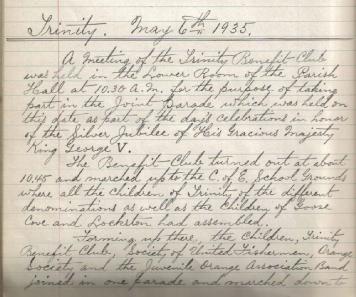 Trinity. May 6th 1935.
A Meeting of the Trinity Benefit Club
was held in the Lower Room of the Parish
Hall at 10.30 A.M. for the purpose of taking
part in the Joint Parade which was held on
this date as part of the day's celebrations in honor
of the Silver Jubilee of His Gracious Majesty
King George V.
The Benefit Club turned out at about
10.45 and marched up to the C. of E. School Grounds
where all the Children of Trinity of the different
denominations as well as the Children of Goose
Cove and Lockston had assembled.
Forming up there, the Children, Trinity
Benefit Club, Society of United Fishermen, Orange
Society and the Juvenile Orange Association Band
joined in one parade and marched down to